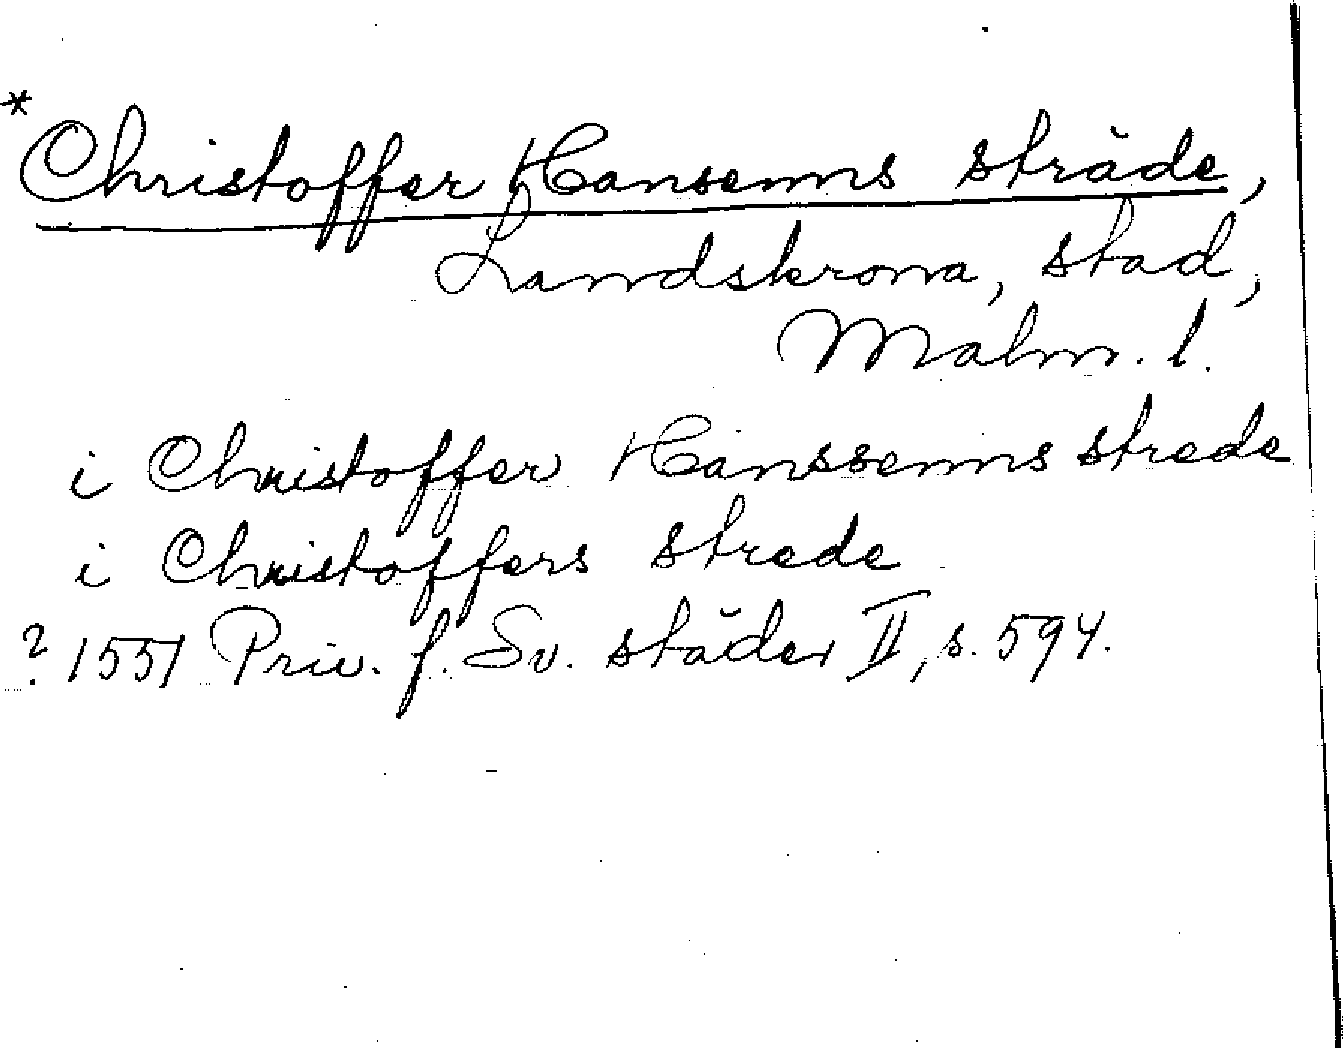 *Christoffer Hansenns sträde,
Landskrona, stad,
Malm. l.
i Christoffer Hanssenns strede
i Christoffers strede
? 1551 Priv. f. Sv. städer II, s. 594.